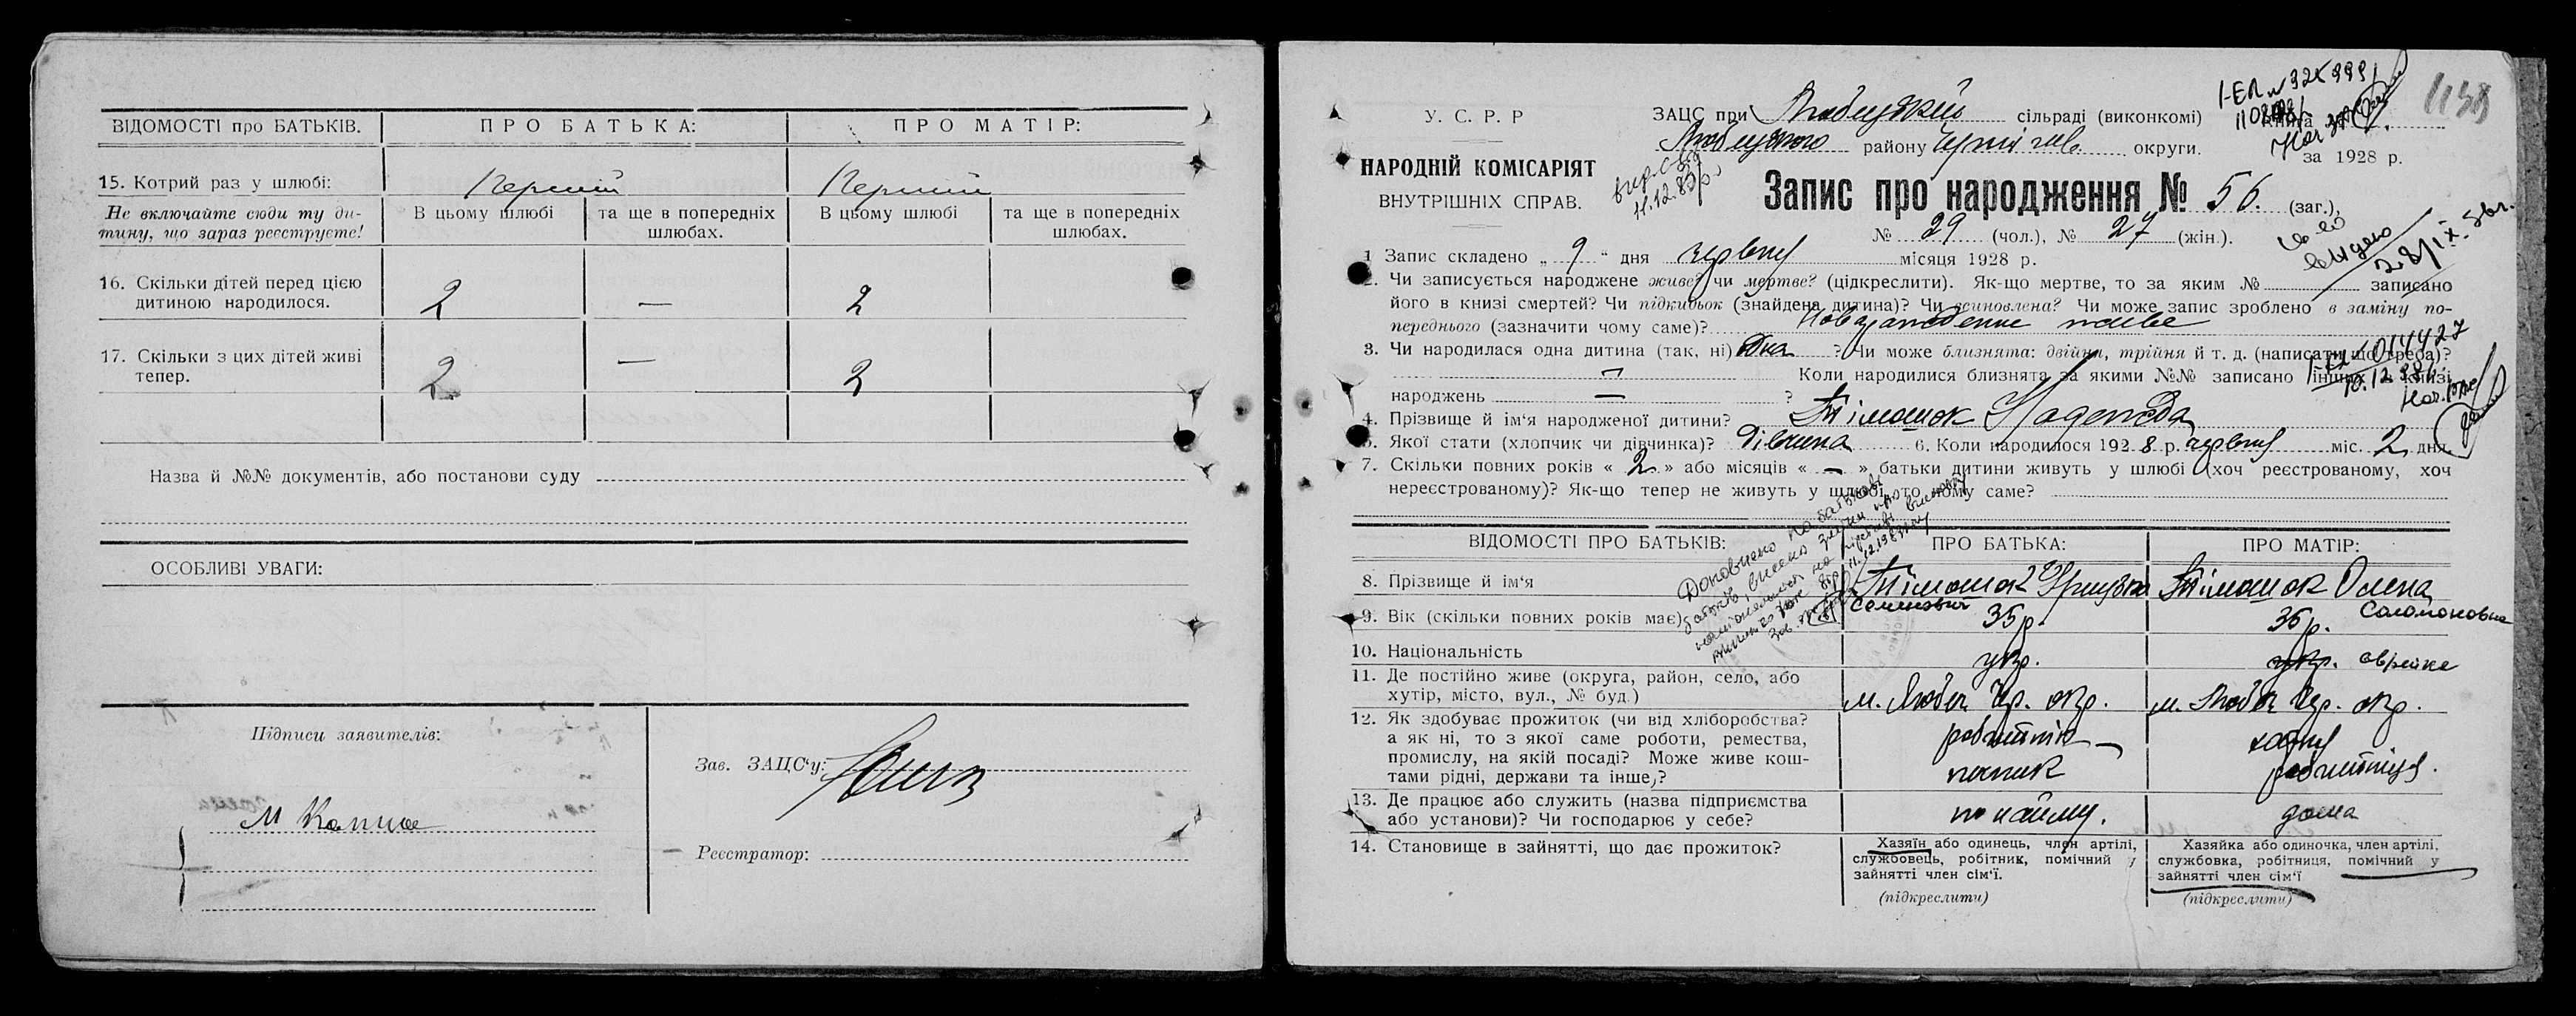 ВІДОМОСТІ про БАТЬКІВ.
ПРО БАТЬКА:
ПРО МАТІР:
15. Котрий раз у шлюбі:
Перший
Перший
Не включайте сюди ту ди-
тину, що зараз реєструєте!
В цьому шлюбі
та ще в попередніх
шлюбах.
В цьому шлюбі
та ще в попередніх
шлюбах.
16. Скільки дітей перед цією
дитиною народилося.
2
—
2
17. Скільки з цих дітей живі
тепер.
2
—
2
Назва й №№ документів, або постанови суду
ОСОБЛИВІ УВАГИ:
Підписи заявителів:
Зав. ЗАЦС'у:
Реєстратор:
У. С. Р. Р
НАРОДНІЙ КОМІСАРІЯТ
ВНУТРІШНІХ СПРАВ.
ЗАЦС при Любецькій сільраді (виконкомі)
Любецького району Черніг. округи.
за 1928 р.
1138
11.12.83р.
Запис про народження № 56. (заг.),
№ 29 (чол.), № 27 (жін.).
28/IX-56г.
1 Запис складено „ 9 “ дня червня місяця 1928 р.
2. Чи записується народжене живе? чи мертве? (підкреслити). Як-що мертве, то за яким № записано
його в книзі смертей? Чи підкидьок (знайдена дитина)? Чи всиновлена? Чи може запис зроблено в заміну по-
переднього (зазначити чому саме)?
3. Чи народилася одна дитина (так, ні) одна ? Чи може близнята: двійня, трійня й т. д. (написати що треба)?
— Коли народилися близнята за якими №№ записано інших в книзі
народжень — ?
4. Прізвище й ім'я народженої дитини? Тімошок Надежда
5. Якої стати (хлопчик чи дівчинка)? Дівчина 6. Коли народилося 1928 р. червня міс. 2 дня.
7. Скільки повних років « 2 » або місяців « — » батьки дитини живуть у шлюбі (хоч реєстрованому, хоч
нереєстрованому)? Як-що тепер не живуть у шлюбі, то чому саме?
ВІДОМОСТІ ПРО БАТЬКІВ:
ПРО БАТЬКА:
ПРО МАТІР:
8. Прізвище й ім'я
Тімошок
Тімошок Олена
Семенович
Соломоновна
9. Вік (скільки повних років має)
35 р.
35 р.
10. Національність
укр.
укр. єврейка
11. Де постійно живе (округа, район, село, або
хутір, місто, вул., № буд.)
м. Любеч Чер. окр.
м. Любеч Чер. окр.
12. Як здобуває прожиток (чи від хліборобства?
а як ні, то з якої саме роботи, ремества,
промислу, на якій посаді? Може живе кош-
тами рідні, держави та інше,?
робітник —
хатня
робітниця.
13. Де працює або служить (назва підприємства
або установи)? Чи господарює у себе?
по найму.
дома
14. Становище в зайнятті, що дає прожиток?
Хазяїн або одинець, член артілі,
службовець, робітник, помічний у
зайнятті член сім'ї.
(підкреслити)
Хазяйка або одиночка, член артілі,
службовка, робітниця, помічний у
зайнятті член сім'ї
(підкреслити)